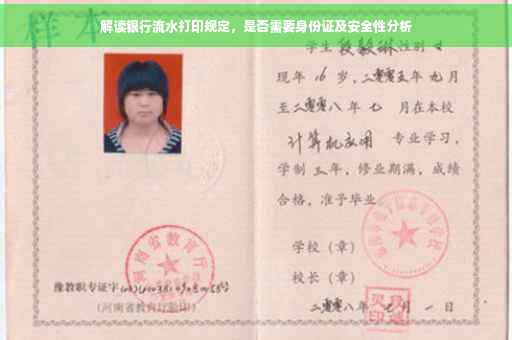 解读银行流水打印规定，是否需要身份证及安全性分析
样本
学生 段毅琳 性别 女
现年 16 岁，二零零五年 九月
至二零零八年 七 月在本校
计算机应用 专业学习，
学制 三年，修业期满，成绩
合格，准予毕业
学校（章）
校长（章）
二零零八年 七 月 一 日
河南省教育厅
豫教职专证字
（河南省教育厅验印）